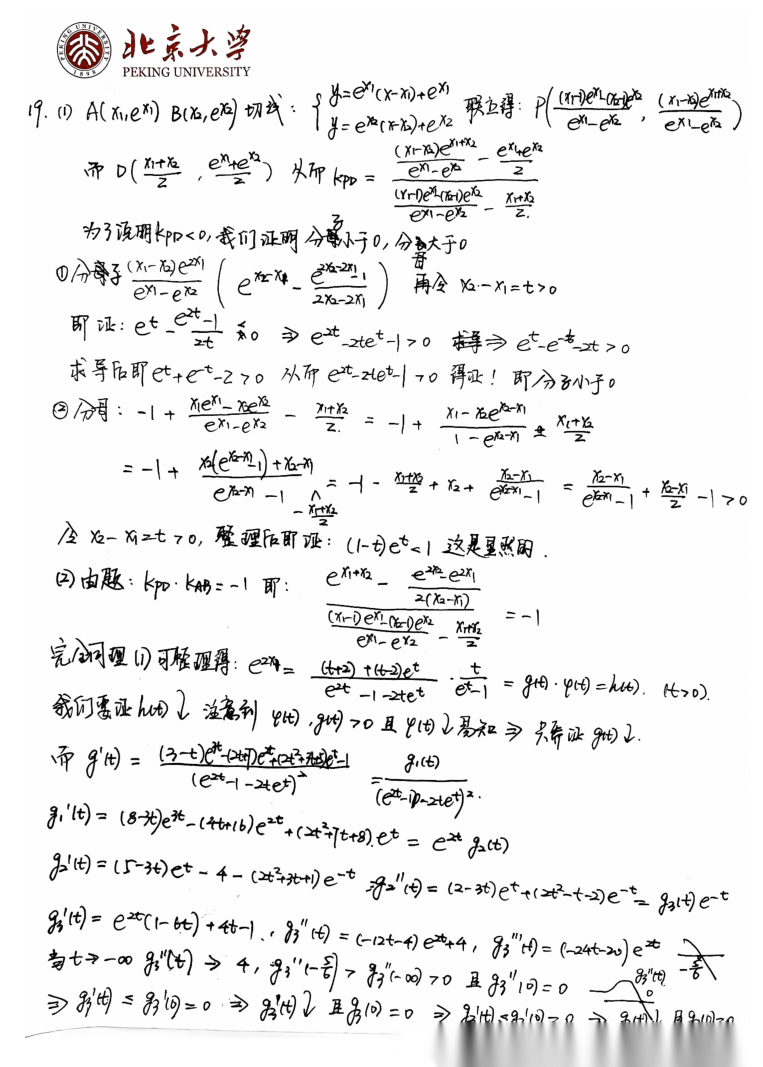 北京大学
PEKING UNIVERSITY
19. (1) A(x₁,e^{x₁}) B(x₂,e^{x₂}) 切线: { y=e^{x₁}(x-x₁)+e^{x₁} y=e^{x₂}(x-x₂)+e^{x₂} 联立得: P( ((x₁-1)e^{x₁}-(x₂-1)e^{x₂})/(e^{x₁}-e^{x₂}) , ((x₁-x₂)e^{x₁+x₂})/(e^{x₁}-e^{x₂}) )
而 D( (x₁+x₂)/2 , (e^{x₁}+e^{x₂})/2 ) 从而 k_{PD} = ( ((x₁-x₂)e^{x₁+x₂})/(e^{x₁}-e^{x₂}) - (e^{x₁}+e^{x₂})/2 ) / ( ((x₁-1)e^{x₁}-(x₂-1)e^{x₂})/(e^{x₁}-e^{x₂}) - (x₁+x₂)/2. )
为了说明k_{PD}<0, 我们证明 分子小于0, 分母大于0
①分子 ((x₁-x₂)e^{2x₁})/(e^{x₁}-e^{x₂}) ( e^{x₂-x₁} - (e^{2x₂-2x₁}-1)/(2x₂-2x₁) ) 再令 x₂-x₁=t>0
即证: e^t - (e^{2t}-1)/2t <0 ⇒ e^{2t}-2te^t-1>0 ⇒ e^t-e^{-t}-2t>0
求导后即 e^t+e^{-t}-2>0 从而 e^{2t}-2te^t-1>0 得证! 即分子小于0
②分母: -1 + (x₁e^{x₁}-x₂e^{x₂})/(e^{x₁}-e^{x₂}) - (x₁+x₂)/2. = -1 + (x₁-x₂e^{x₂-x₁})/(1-e^{x₂-x₁}) - (x₁+x₂)/2
= -1 + (x₂(e^{x₂-x₁}-1)+x₂-x₁)/(e^{x₂-x₁}-1) - (x₁+x₂)/2 = -1 - (x₁+x₂)/2 + x₂ + (x₂-x₁)/(e^{x₂-x₁}-1) = (x₂-x₁)/(e^{x₂-x₁}-1) + (x₂-x₁)/2 -1>0
令 x₂-x₁=t>0, 整理后即证: (1-t)e^t<1 这是显然的.
(2) 由题: k_{PD}·k_{AB}=-1 即: ( e^{x₁+x₂} - (e^{2x₂}-e^{2x₁})/(2(x₂-x₁)) ) / ( ((x₁-1)e^{x₁}-(x₂-1)e^{x₂})/(e^{x₁}-e^{x₂}) - (x₁+x₂)/2 ) = -1
完全同理(1)可整理得: e^{2x₁} = ((t+2)+(t-2)e^t)/(e^{2t}-1-2te^t) · t/(e^t-1) = g(t)·φ(t)=h(t). (t>0).
我们要证 h(t)↓ 注意到 φ(t), g(t)>0 且 φ(t)↓易知 ⇒ 只需证 g(t)↓.
而 g'(t) = ((3-t)e^{3t}-(2t+7)e^{2t}+(2t²+3t+5)e^t-1)/(e^{2t}-1-2te^t)² = g₁(t)/(e^{2t}-1-2te^t)².
g₁'(t)=(8-3t)e^{3t}-(4t+16)e^{2t}+(2t²+7t+8).e^t = e^{2t} g₂(t)
g₂'(t)=(5-3t)e^t-4-(2t²+3t+1)e^{-t} ⇒g₂''(t)=(2-3t)e^t+(2t²-t-2)e^{-t}=g₃(t)e^{-t}
g₃'(t)=e^{2t}(1-6t)+4t-1., g₃''(t)=(-12t-4)e^{2t}+4, g₃'''(t)=(-24t-20)e^{2t} -5/6
当t→-∞ g₃''(t)→4, g₃''(-5/6)>g₃''(-∞)>0 且g₃''(0)=0 g₃''(t) 0
⇒ g₃'(t)≤g₃'(0)=0 ⇒ g₃(t)↓ 且g₃(0)=0 ⇒